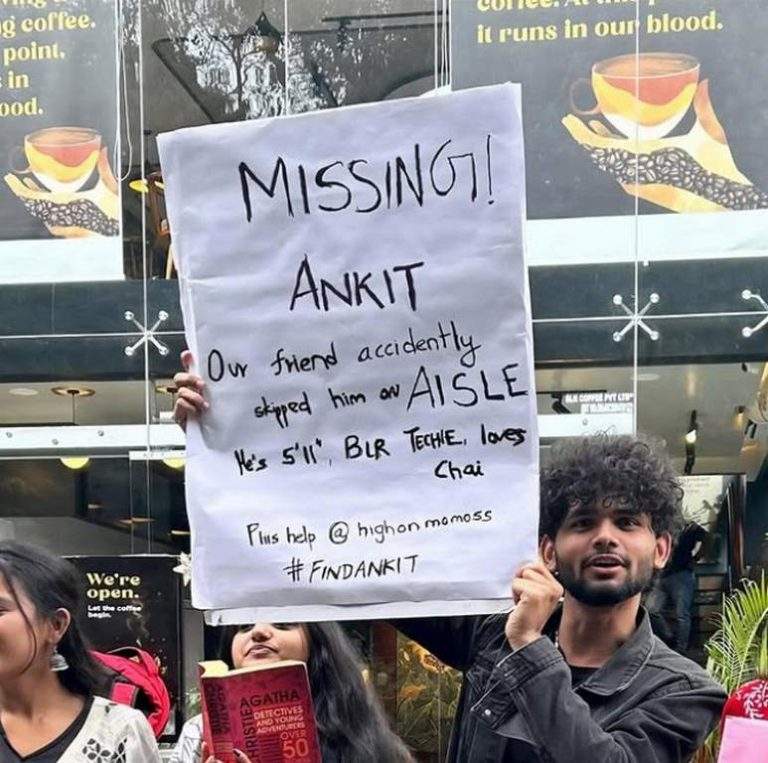 g coffee.
point,
in
ood.
it runs in our blood.
MISSING!
ANKIT
Our friend accidently
skipped him on AISLE
He's 5'11", BLR TECHIE, loves
Chai
Plus help @ highonmomoss
#FINDANKIT
BLR COFFEE PVT LTD
We're
open.
Let the coffee
begin.
AGATHA
CHRISTIE
DETECTIVES
AND YOUNG
ADVENTURERS
OVER
50